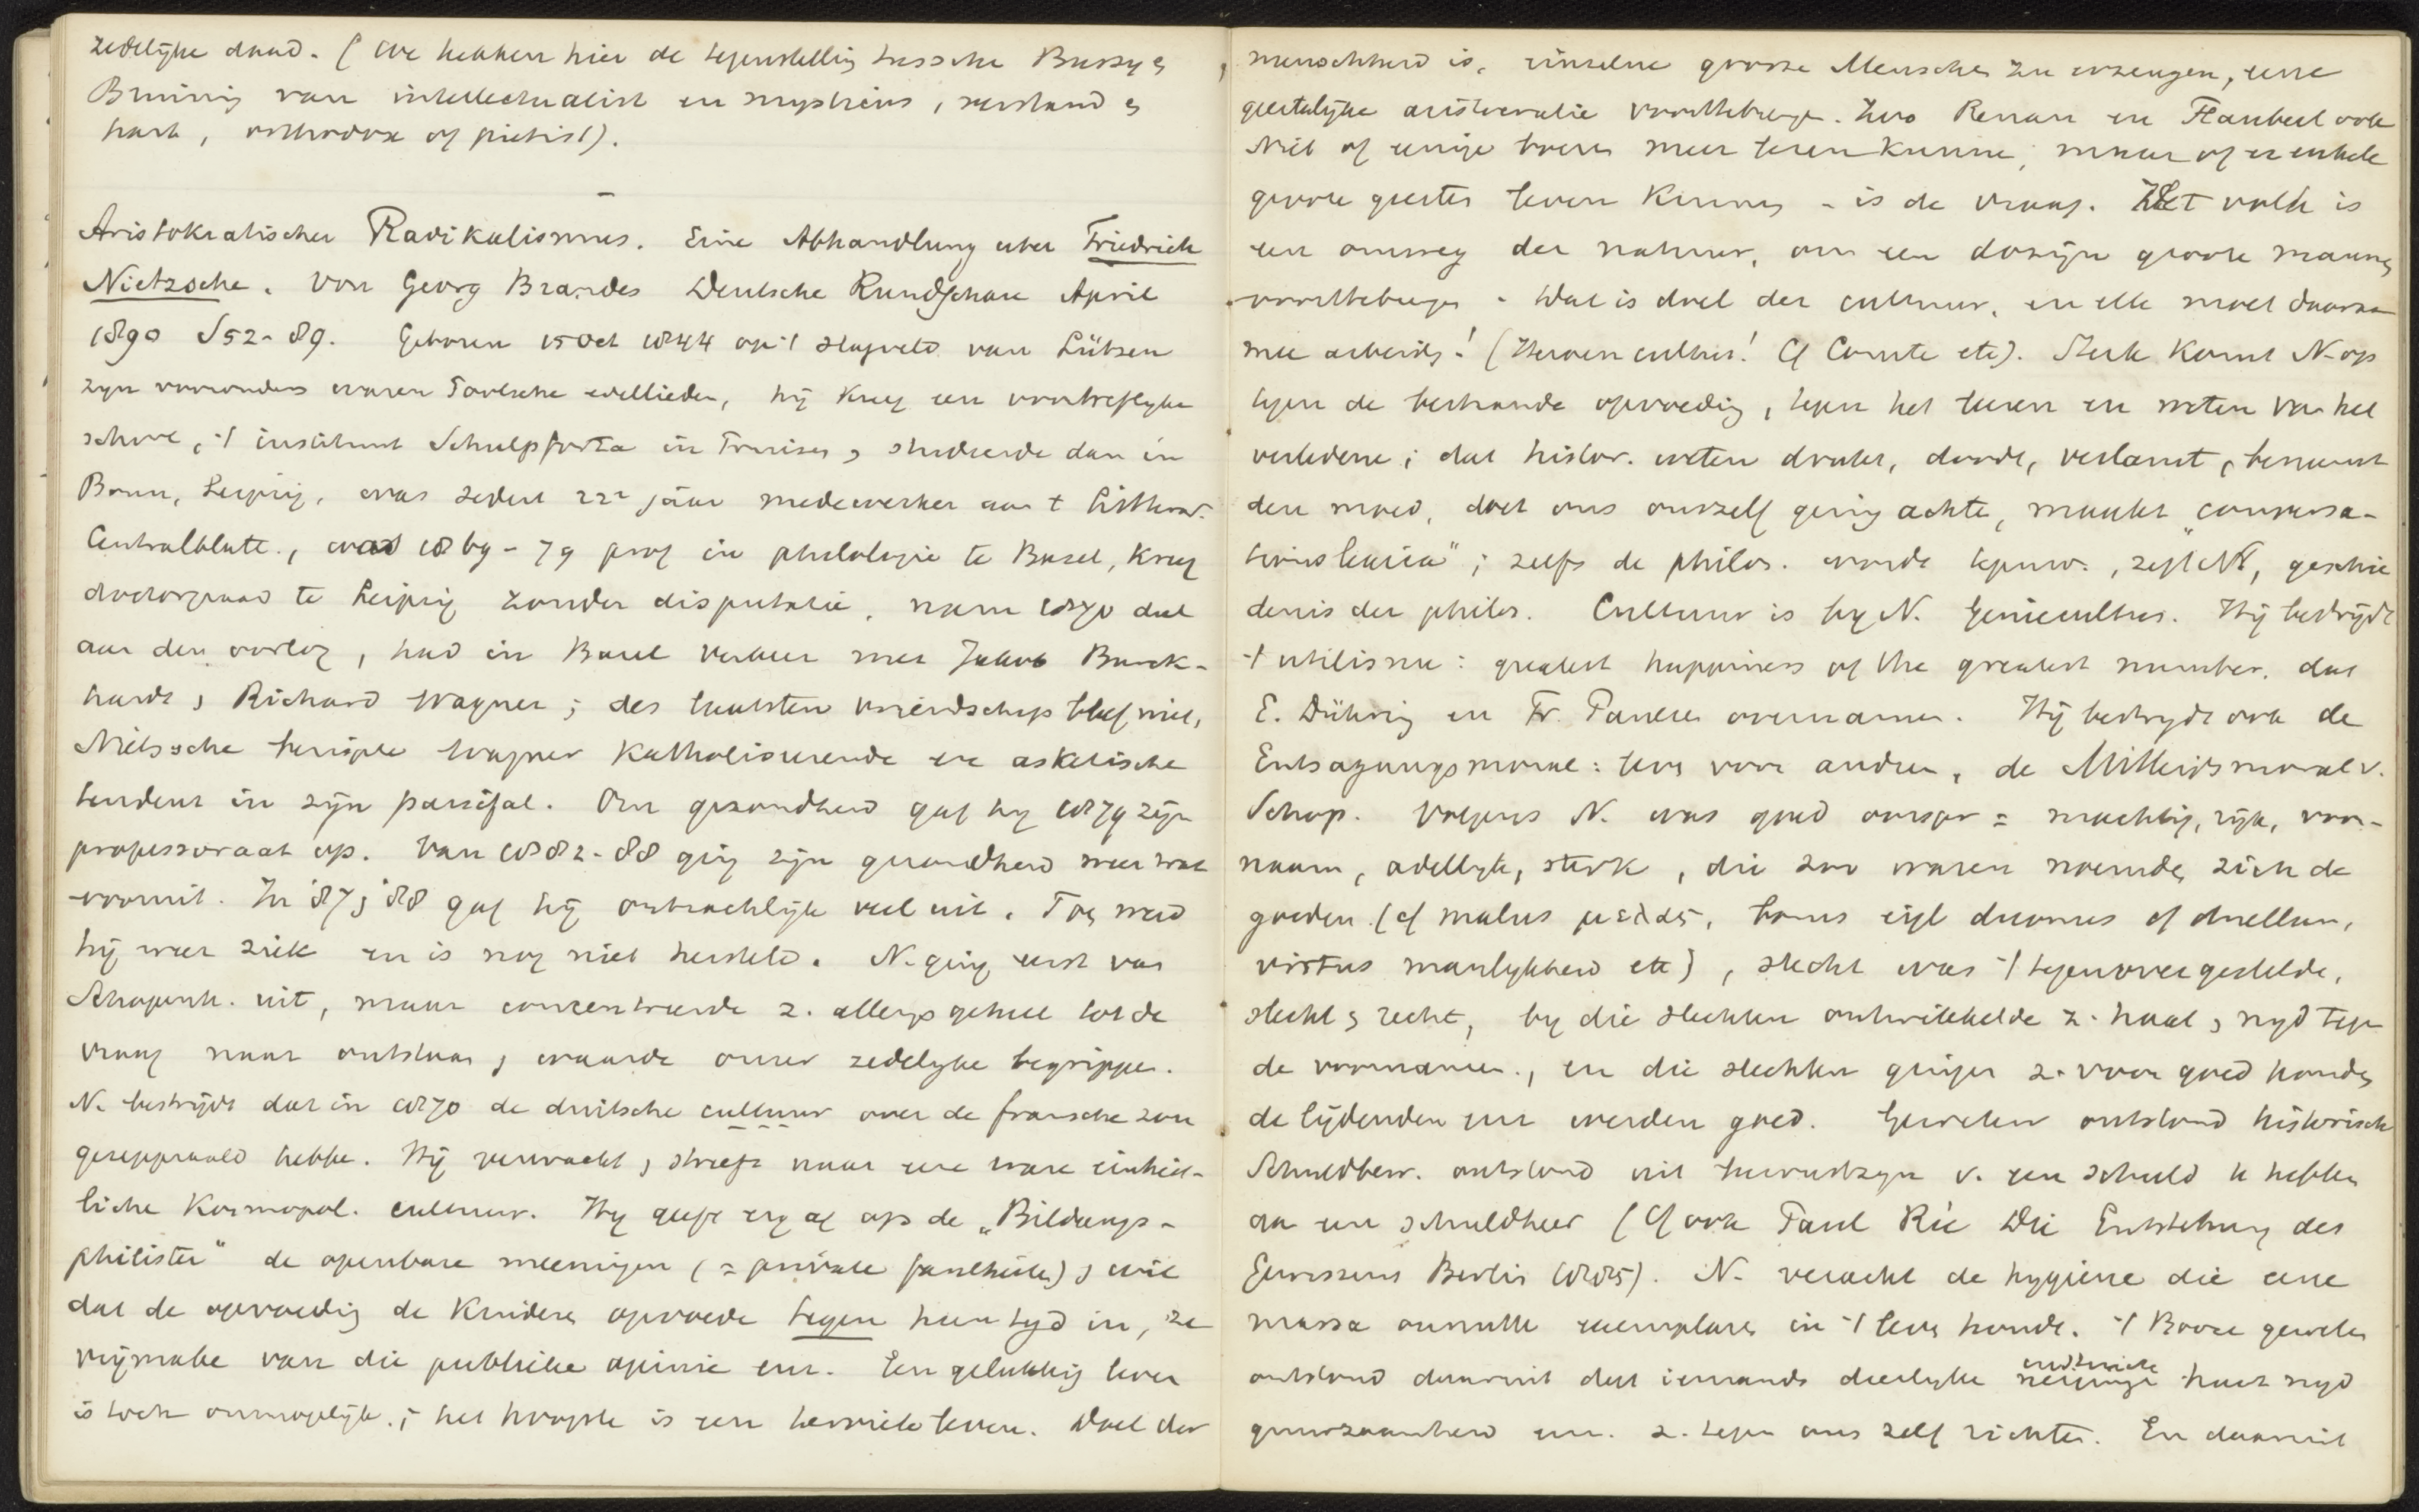 zedelijke daad. (We hebben hier de tegenstelling tussche Bussy &
Bruining van intellectualist en mysticus, verstand &
hart, orthodox of pietist).
Aristokratischer Radikalismus. Eine Abhandlung uber Friedrich
Nietzsche. Von Georg Brandes Deutsche Rundschau April
1890 S 52-89. Geboren 15 Oct 1844 op 't slagveld van Lützen
zijn voorouders waren Poolsche edellieden, hij kreeg een voortreflijke
school, 't instituut Schulpforta in Pruisen, studeerde dan in
Bonn, Leipzig, was sedert 22e jaar medewerker aan t Litterar.
Centralblatt., was 1869-79 prof in philologie te Basel, kreeg
doctorgraad te Leipzig zonder disputatie, nam 1870 deel
aan den oorlog, had in Basel verkeer met Jakob Burck-
hardt, Richard Wagner; des laatsten vriendschap bleef niet,
Nietssche hernipte Wagner katholiseerende en asketische
tendenz in zijn parsifal. Om gezondheid gaf hij 1879 zijn
professoraat op. Van 1882-88 ging zijn gezondheid weer wat
vooruit. In '87, '88 gaf hij ontzachlijk veel uit. Toen werd
hij weer ziek en is nog niet hersteld. N. ging eerst van
Schopenh. uit, maar concentreerde z. allengs geheel tot de
vraag naar ontstaan, waarde onzer zedelijke begrippen.
N. bestrijdt dat in 1870 de duitsche cultuur over de fransche zou
gezeppraald hebbe. Hij verwacht, streeft naar eene ware einheit-
liche kosmopol. cultuur. Hij geeft erg af op de „Bildungs-
philister" de openbare meeningen (= private faulheiten), wil
dat de opvoeding de kinderen opvoede tegen hun tijd in, ze
vrijmake van die publieke opinie enz. Een gelukkig leven
is toch onmogelijk; het hoogste is een heroiek leven. Doel der
menschheid is, einzelne grosse Menschen zu erzeugen, eene
geestelijke aristocratie voorttebrengen. Zoo Renan en Flaubert ook
Niet of eenige boeren meer lezen kunnen, maar of er enkele
groote geesten leven kunnen - is de vraag. Het volk is
een omweg der natuur, om een dozijn groote mannen
voorttebrengen. Dat is doel der cultuur, en elk moet daaraan
mee arbeiden! (Heroencultus! Cf Comte etc). Sterk komt N. op
tegen de bestaande opvoeding, tegen het leven en weten van het
verledene; dat histor. weten drukt, doodt, verlamt, beneemt
den moed, doet ons onszelf gering achten, maakt „conversa-
tions lexica"; zelfs de philos. wordt tegenw., zegt N., geschie
denis der philos. Cultuur is bij N. geniecultus. Hij bestrijdt
't utilisme: greatest happiness of the greatest number, dat
E. Dühring en Fr. Paulsen overnamen. Hij bestrijdt ook de
Entsagungsmoral: leven voor andren, de Mitleidsmoral v.
Schop. Volgens N. was goed oorspr = machtig, rijk, voor-
naam, adellijk, sterk, die zoo waren noemden zich de
goeden. (cf malus μελας, bonus eigl duonus cf duellum,
virtus manlijkheid etc), slecht was 't tegenovergestelde,
slecht & recht, bij die slechten ontwikkelde z. haat, nijd tegen
de voornamen., en die slechten gingen z. voor goed houden
de lijdenden enz werden goed. Geweten ontstond historisch
Schuldbew. ontstond uit bewustzijn v. een schuld te hebben
aan een schuldheer (Cf ook Paul Rée Die Entstehung des
Gewissens Berlin 1885). N. veracht de hygiene die eene
massa onnutte exemplaren in 't leven houdt. 't Booze geweten
ontstond daaruit dat iemands dierlijke neiginge haat nijd
gruwzaamheid enz. z. tegen ons zelf richten. En daaruit